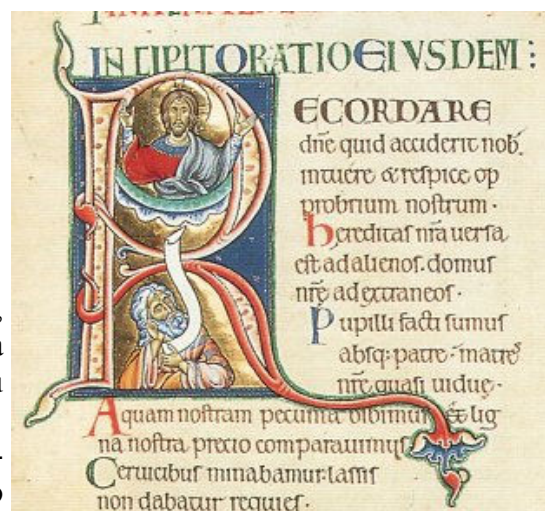 INCIPIT ORATIO EIVSDEM:
RECORDARE
dñe quid acciderit nob̄.
intuere & respice op
probrium nostrum.
hereditas nr̃a uersa
est ad alienos. domus
nr̃e ad extraneos.
Pupilli facti sumus
absq; patre. matres
nr̃e quasi uidue.
Aquam nostram pecunia bibimus & lig
na nostra precio comparauimus
Ceruicibus minabamur. lassis
non dabatur requies.